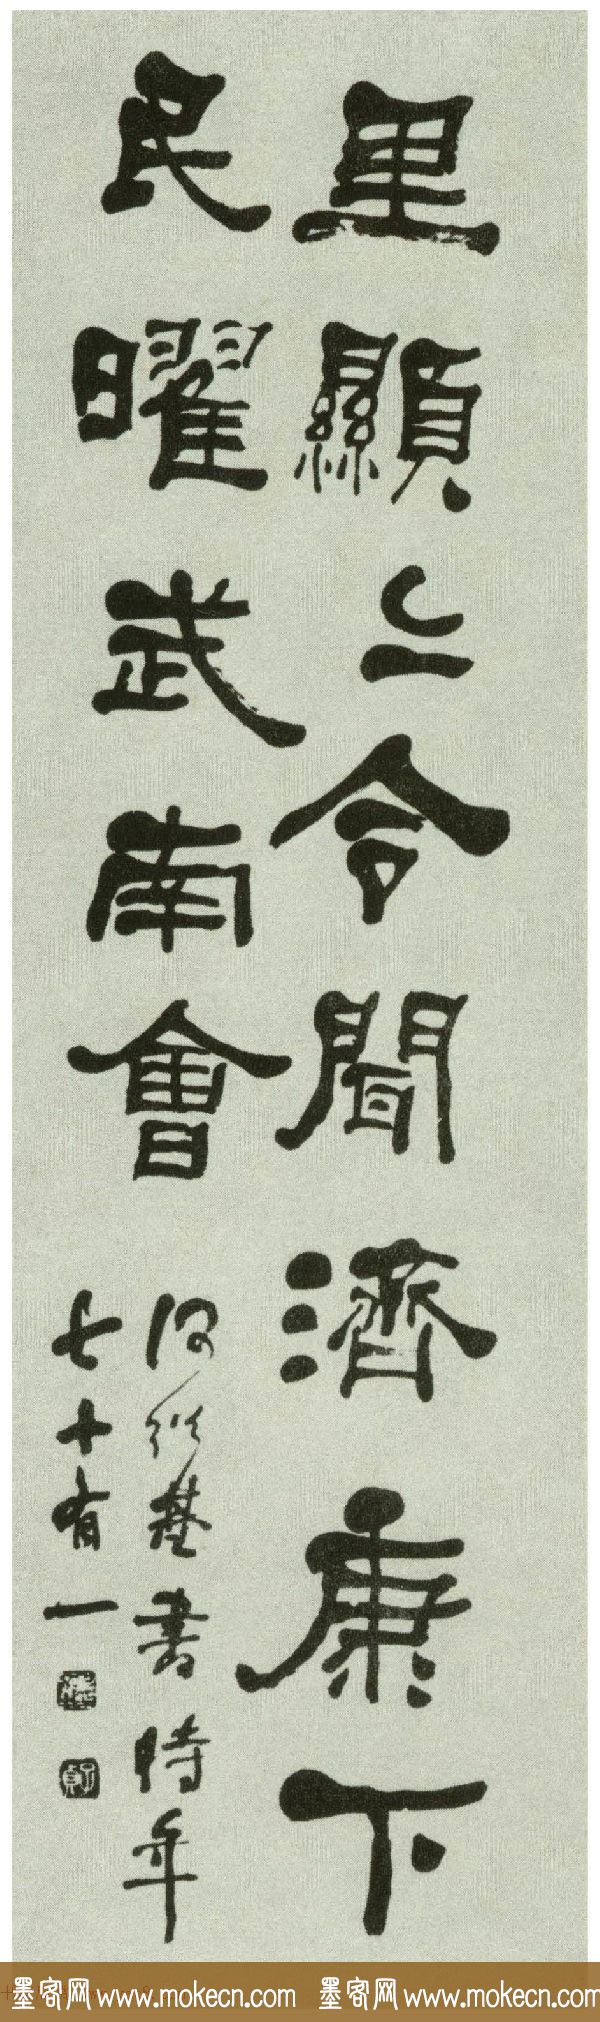 里顯〻令聞濟康下
民曜武南會
何紹基書時年
七十有一
墨客网 www.mokecn.com 墨客网 www.mokecn.com